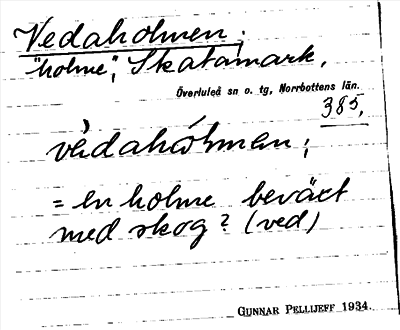 Vedaholmen;
"holme", Skatamark,
Överluleå sn o. tg, Norrbottens län.
385,
vèdahòlman;
= en holme beväxt
med skog? (ved)
GUNNAR PELLIJEFF 1934.